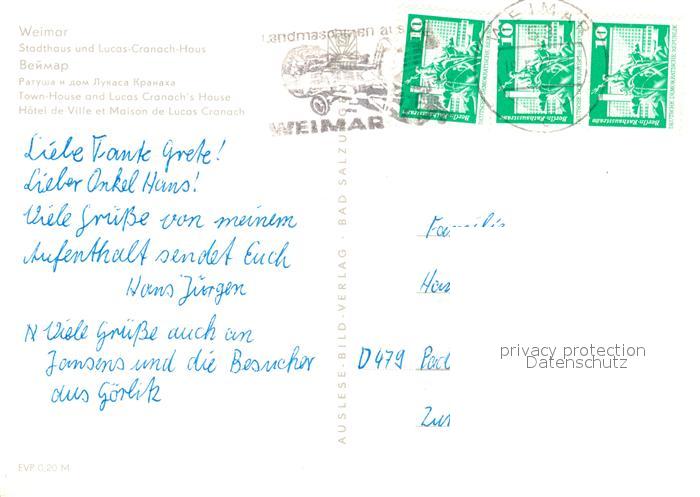 Weimar
Stadthaus und Lucas-Cranach-Haus
Веймар
Ратуша и дом Лукаса Кранаха
Town-House and Lucas Cranach's House
Hôtel de Ville et Maison de Lucas Cranach
Landmaschinen aus
WEIMAR
WEIMAR
10
10
10
Berlin · Rathausstraße
Berlin · Rathausstraße
Berlin · Rathausstraße
Liebe Tante Grete!
Lieber Onkel Hans!
Viele Grüße von meinem
Aufenthalt sendet Euch
Hans Jürgen
N Viele Grüße auch an
Jansens und die Besucher
aus Görlitz
AUSLESE-BILD-VERLAG · BAD SALZU
Familie
Han
D479 Pad
Zur
privacy protection
Datenschutz
EVP 0,20 M